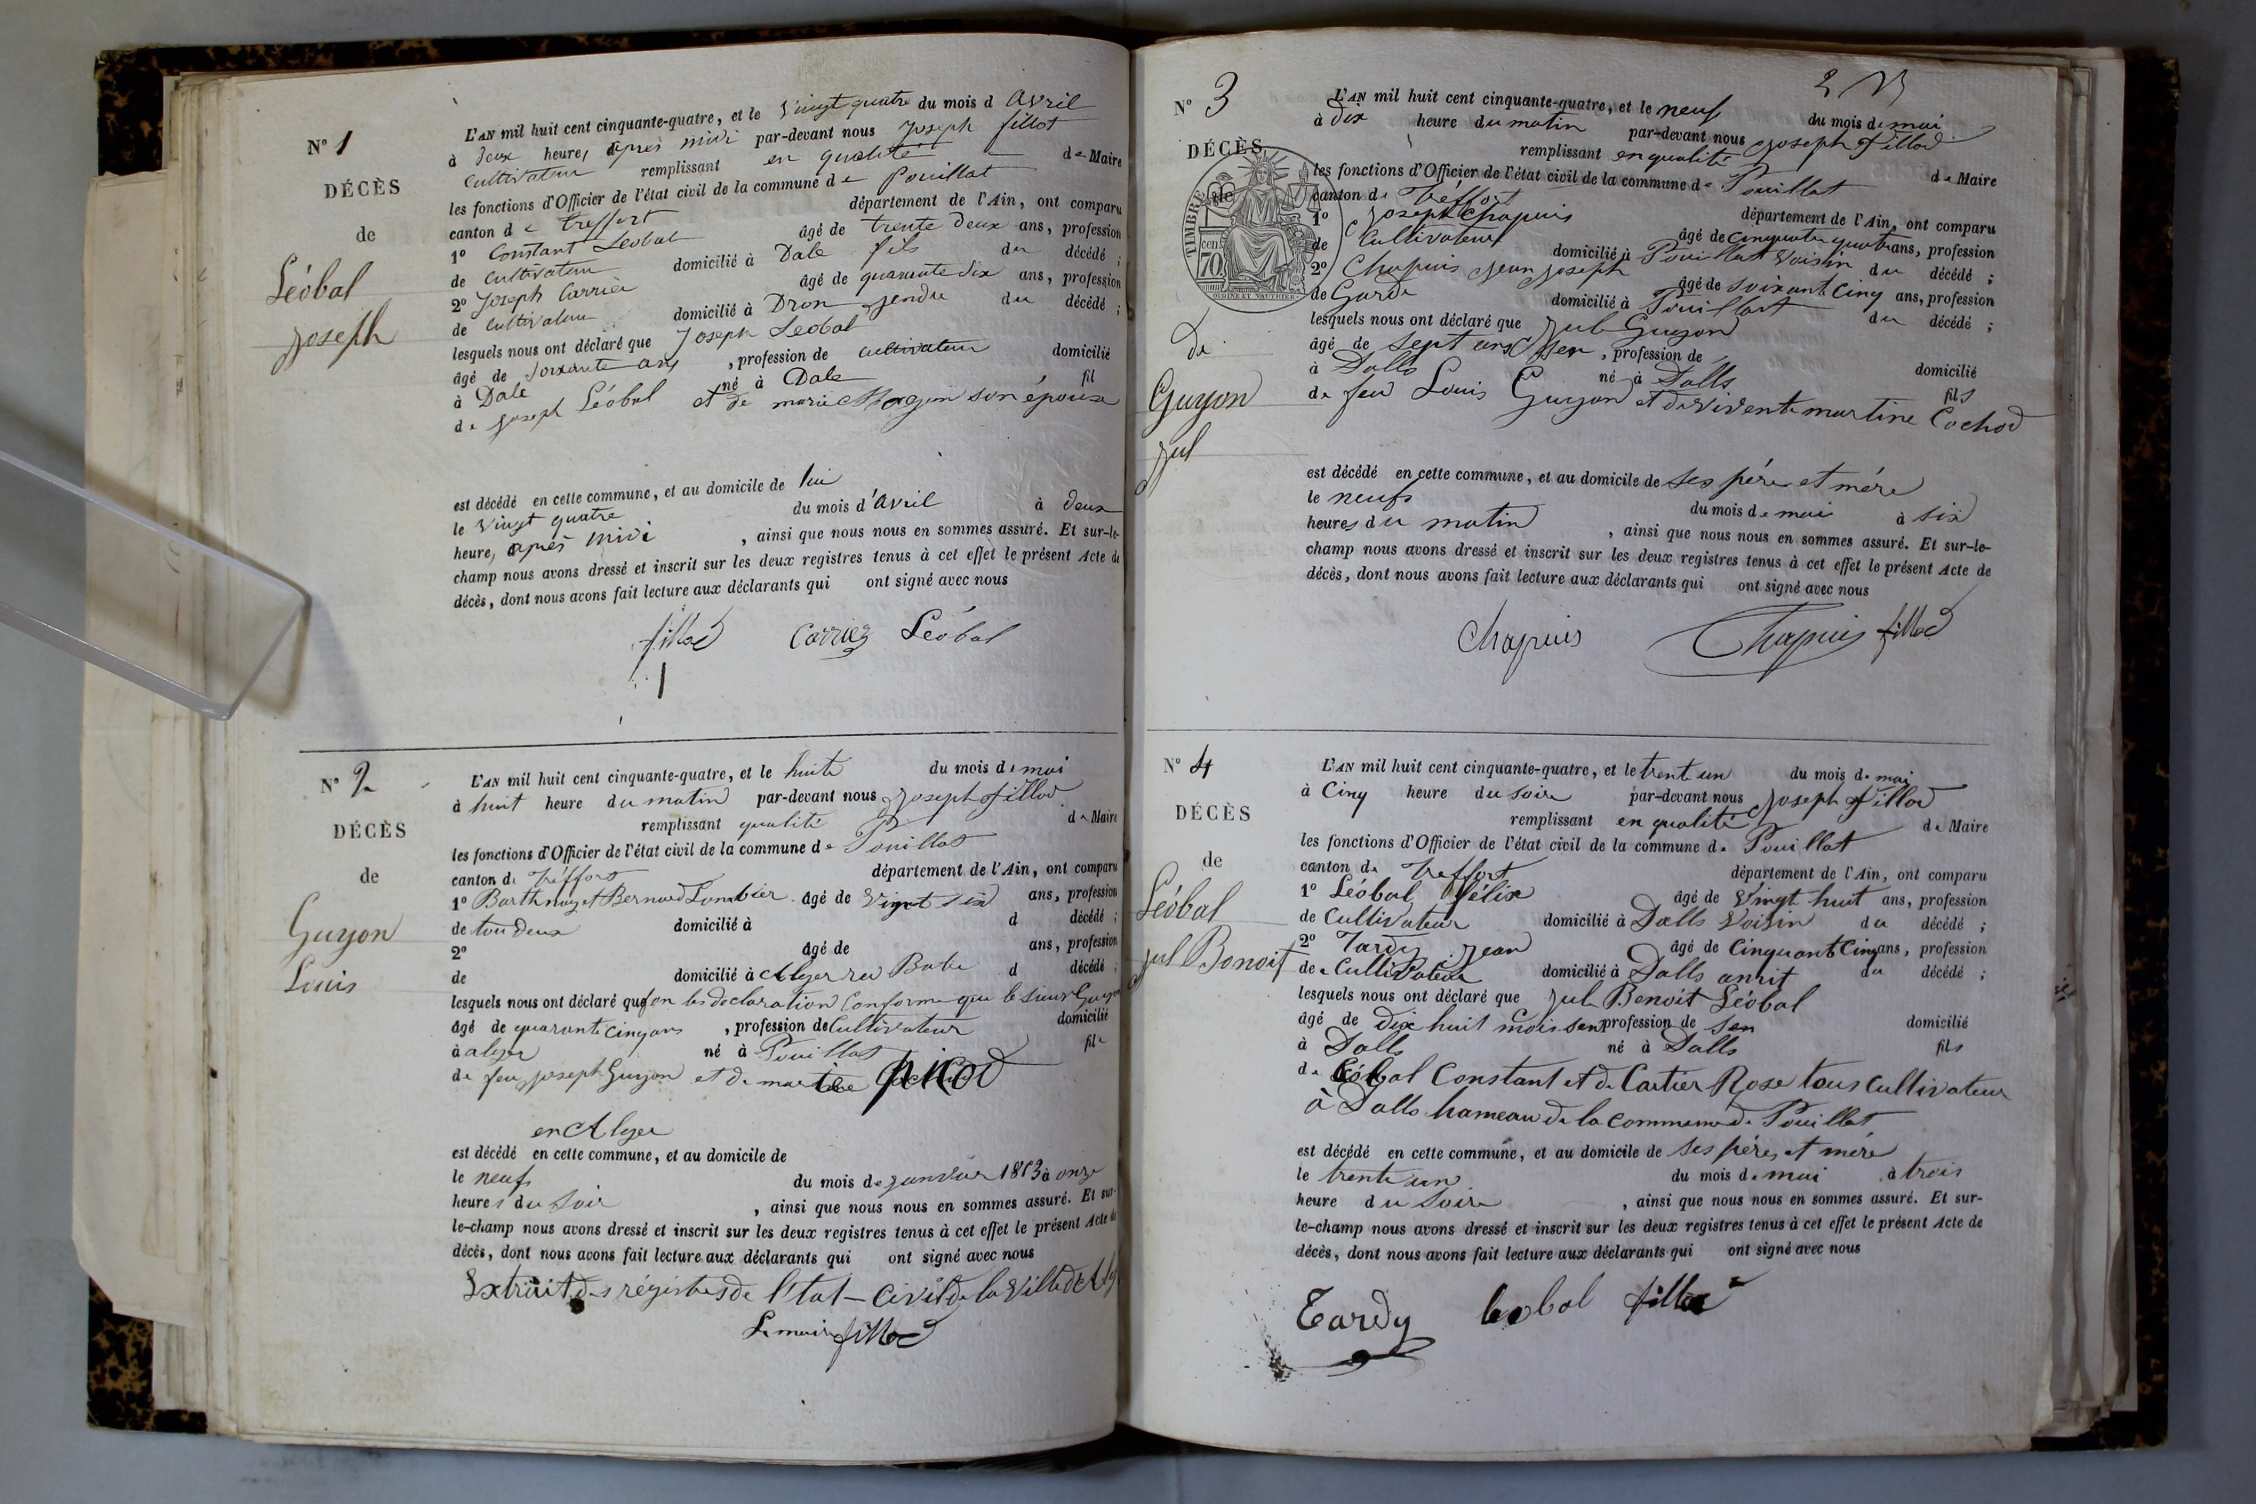 N° 1
DÉCÈS
de
Léobal
joseph
L'AN mil huit cent cinquante-quatre, et le vingt quatre du mois d avril
à deux heures après midi par-devant nous joseph fillot
cultivateur remplissant en qualité de Maire
les fonctions d'Officier de l'état civil de la commune de Pouillat
canton de treffort département de l'Ain, ont comparu
1° Constant Leobal âgé de trente deux ans, profession
de cultivateur domicilié à Dale fils du décédé ;
2° joseph Carrier âgé de quarante dix ans, profession
de cultivateur domicilié à Dron gendre du décédé ;
lesquels nous ont déclaré que joseph Leobal
âgé de soixante ans, profession de cultivateur domicilié
à Dale né à Dale fil
de joseph Léobal et de marie son épouse
est décédé en cette commune, et au domicile de lui
le vingt quatre du mois d'avril à deux
heures après midi, ainsi que nous nous en sommes assuré. Et sur-le-
champ nous avons dressé et inscrit sur les deux registres tenus à cet effet le présent Acte de
décès, dont nous avons fait lecture aux déclarants qui ont signé avec nous
fillod Carriez Léobal
N° 2
DÉCÈS
de
Guyon
Louis
L'AN mil huit cent cinquante-quatre, et le huite du mois de mai
à huit heure du matin par-devant nous joseph fillod
remplissant qualité de Maire
les fonctions d'Officier de l'état civil de la commune de Pouillat
canton de tréffort département de l'Ain, ont comparu
1° Barthmoy et Bernard Lombier âgé de vingt six ans, profession
de tou deux domicilié à d décédé ;
2° âgé de ans, profession
de domicilié à Alger ru Bab d décédé ;
lesquels nous ont déclaré que declaration Conforme que le sieur Guyon
âgé de quarante cinq ans, profession de Cultivateur domicilié
à alger né à Pouillat fils
de feu joseph Guyon et de martine
en Alger
est décédé en cette commune, et au domicile de
le neufs du mois de janvier 1853 à onze
heures du soir, ainsi que nous nous en sommes assuré. Et sur-
le-champ nous avons dressé et inscrit sur les deux registres tenus à cet effet le présent Acte de
décès, dont nous avons fait lecture aux déclarants qui ont signé avec nous
Extrait des régistres de l'état-civil de la ville d'Alg
Le maire fillod
2
N° 3
DÉCÈS
TIMBRE
70
cen
de
Guyon
jul
L'AN mil huit cent cinquante-quatre, et le neuf du mois de mai
à dix heure du matin par-devant nous joseph fillod
remplissant en qualité de Maire
les fonctions d'Officier de l'état civil de la commune de Pouillat
canton de tréffort département de l'Ain, ont comparu
1° joseph Chapuis âgé de cinquante quatre ans, profession
de Cultivateur domicilié à Pouillat voisin du décédé ;
2° Chapuis jean joseph âgé de soixante cinq ans, profession
de Garde domicilié à Pouillat du décédé ;
lesquels nous ont déclaré que jule Guyon
âgé de sept ans, profession de domicilié
à Dalls né à Dalls fils
de feu Louis Guyon et de vivente martine Cochod
est décédé en cette commune, et au domicile de ses père et mère
le neufs du mois de mai à six
heures du matin, ainsi que nous nous en sommes assuré. Et sur-le-
champ nous avons dressé et inscrit sur les deux registres tenus à cet effet le présent Acte de
décès, dont nous avons fait lecture aux déclarants qui ont signé avec nous
Chapuis Chapuis fillod
N° 4
DÉCÈS
de
Léobal
jul Benoit
L'AN mil huit cent cinquante-quatre, et le trent un du mois de mai
à Cinq heure du soire par-devant nous joseph fillod
remplissant en qualité de Maire
les fonctions d'Officier de l'état civil de la commune de Pouillat
canton de treffort département de l'Ain, ont comparu
1° Léobal félix âgé de vingt huit ans, profession
de Cultivateur domicilié à Dalls voisin du décédé ;
2° Tardy jean âgé de Cinquant Cinq ans, profession
de Cultivateur domicilié à Dalls amit du décédé ;
lesquels nous ont déclaré que jule Benoit Léobal
âgé de Dix huit mois sen profession de sen domicilié
à Dalls né à Dalls fils
de Léobal Constant et de Cartier Rose tous cultivateur
à Dalls hameau de la commune de Pouillat
est décédé en cette commune, et au domicile de ses père et mère
le trente un du mois de mai à trois
heure du soire, ainsi que nous nous en sommes assuré. Et sur-
le-champ nous avons dressé et inscrit sur les deux registres tenus à cet effet le présent Acte de
décès, dont nous avons fait lecture aux déclarants qui ont signé avec nous
Tardy leobal fillod